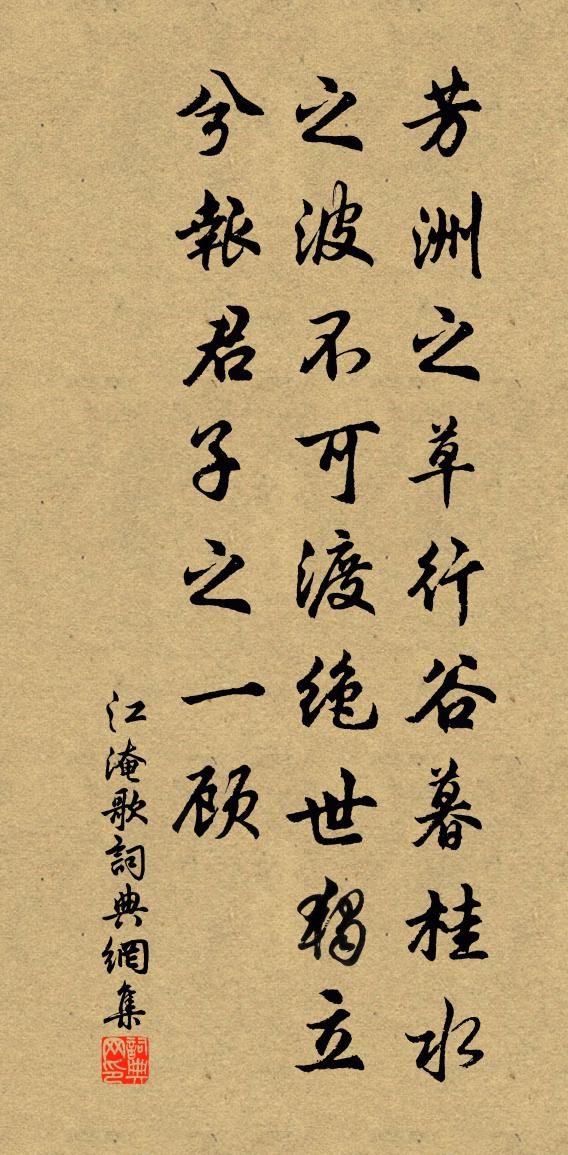 芳洲之草行谷暮桂水
之波不可渡绝世獨立
兮報君子之一顾
江淹歌詞典網集
詞典
网印